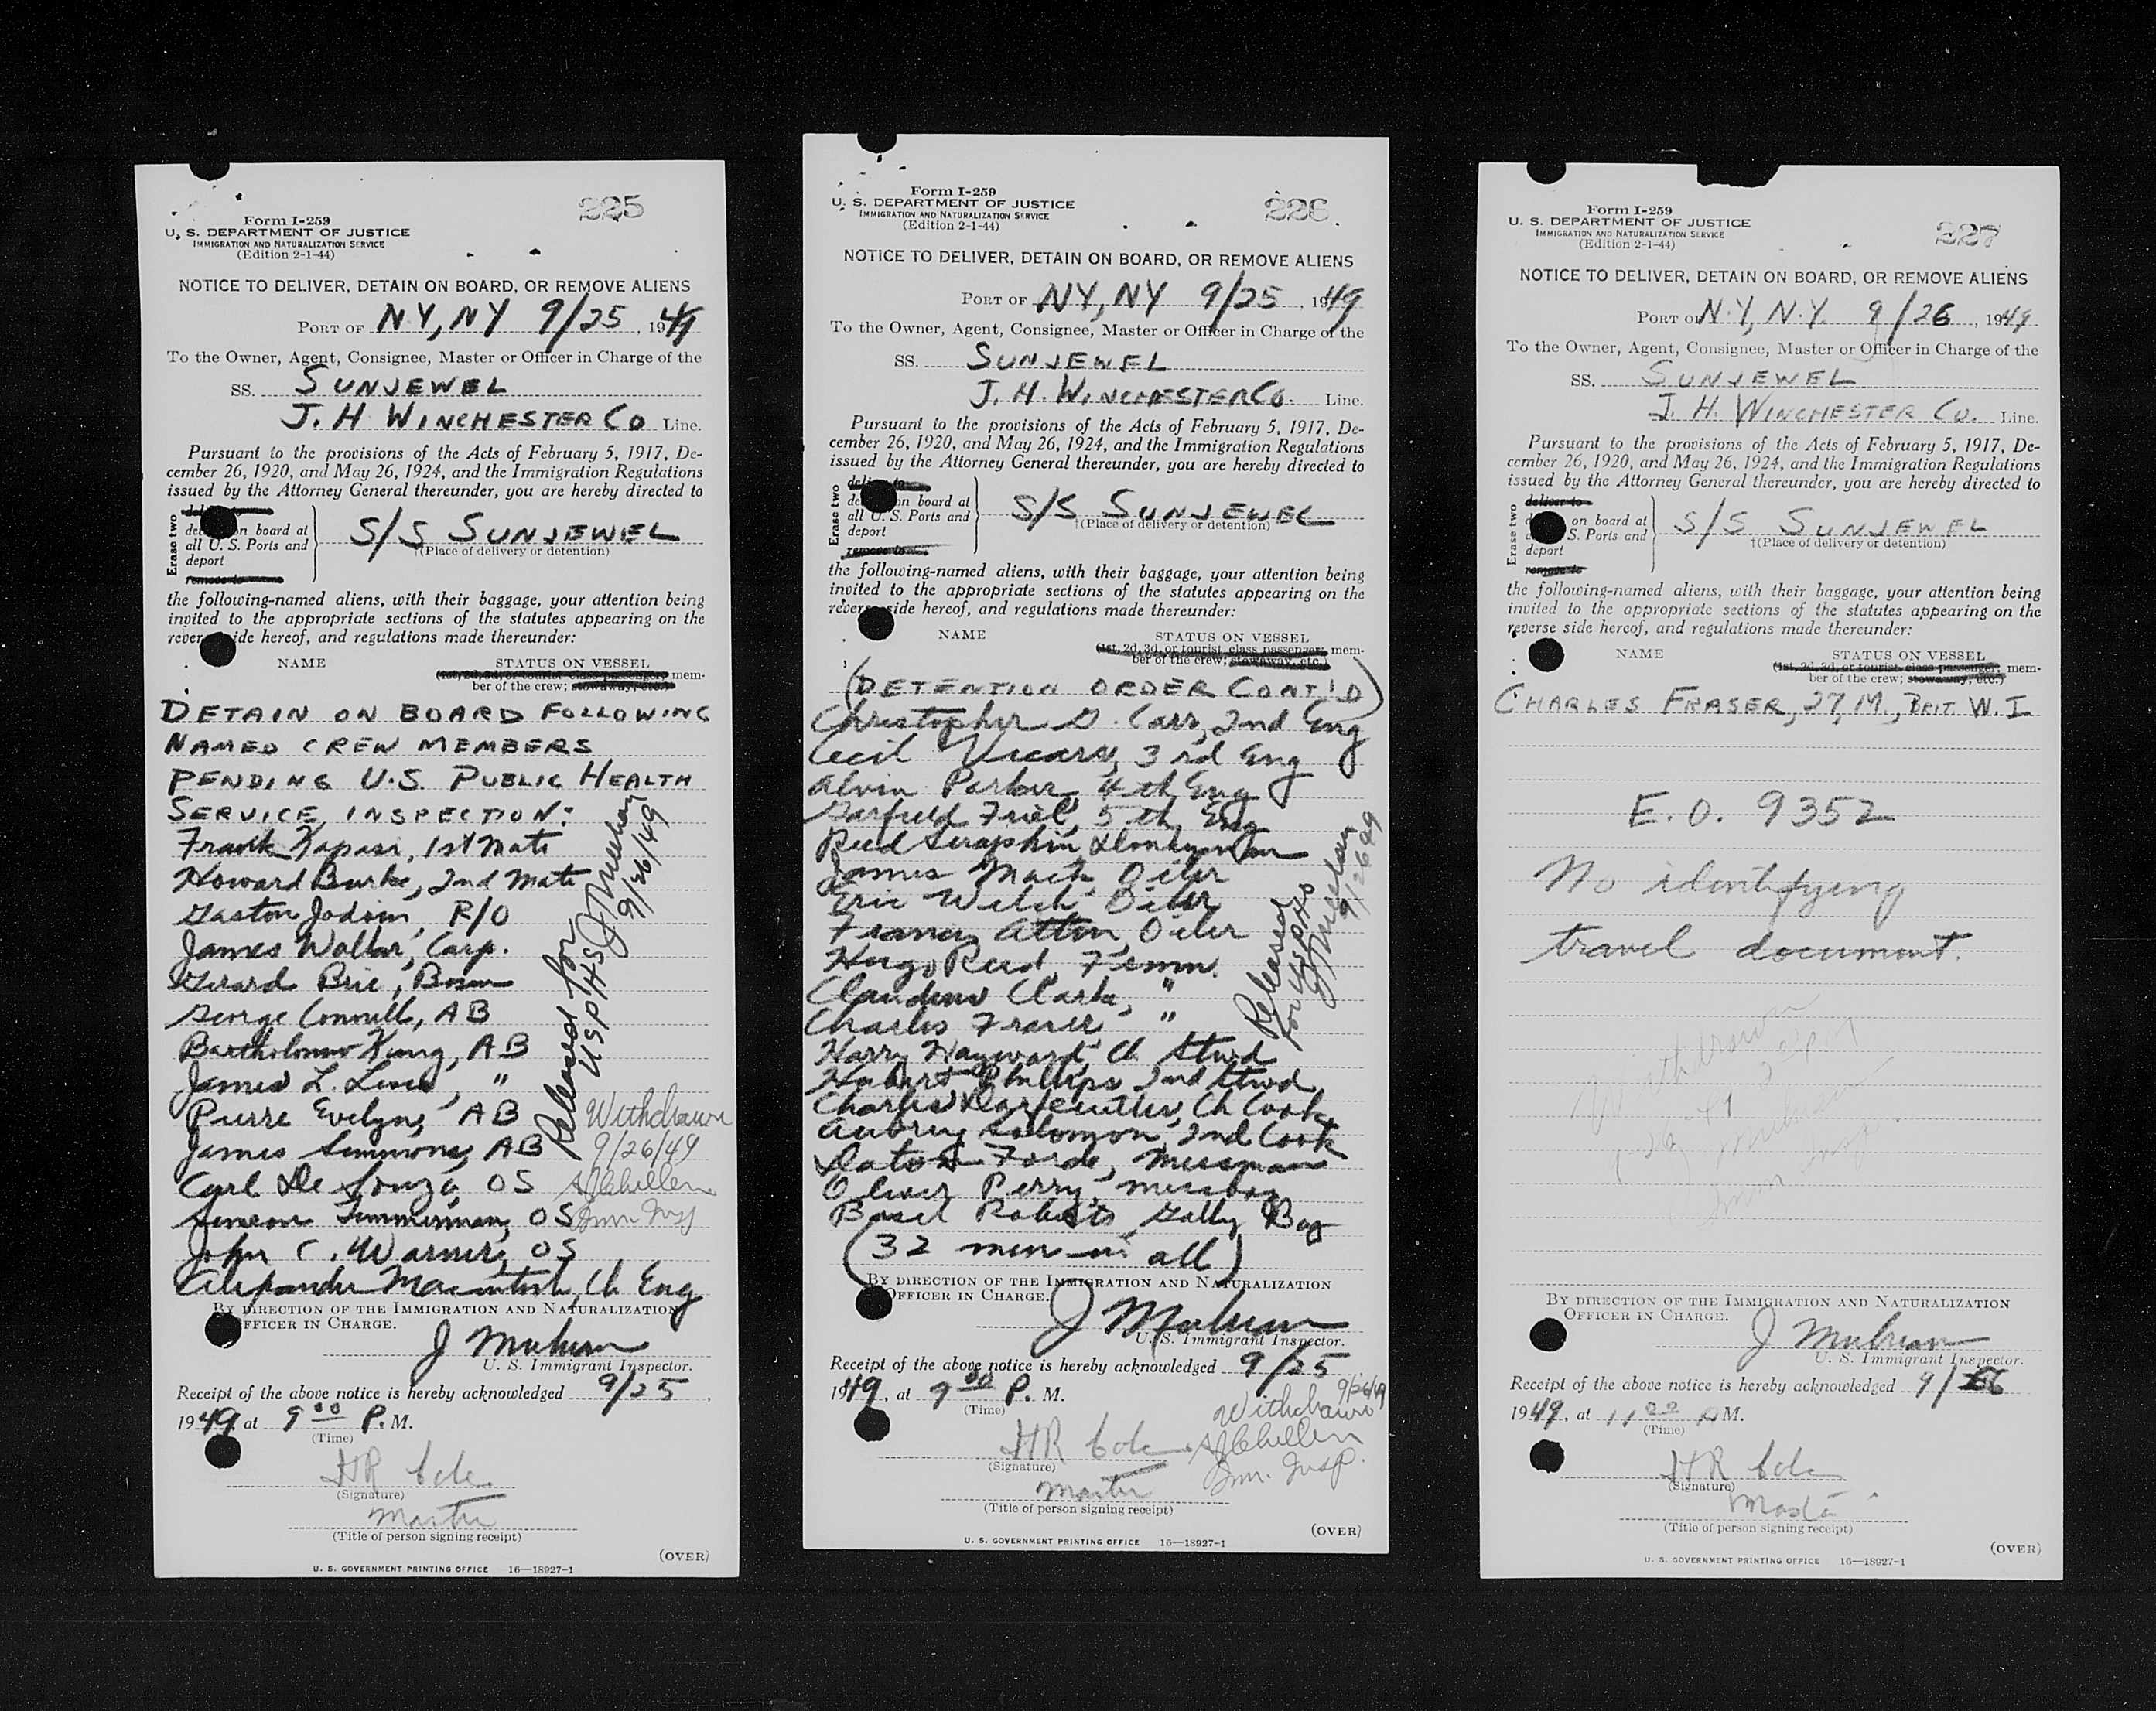 225
Form I-259
U. S. DEPARTMENT OF JUSTICE
IMMIGRATION AND NATURALIZATION SERVICE
(Edition 2-1-44)
NOTICE TO DELIVER, DETAIN ON BOARD, OR REMOVE ALIENS
PORT OF N.Y, NY 9/25, 1949
To the Owner, Agent, Consignee, Master or Officer in Charge of the
SS. SUNJEWEL
J. H WINCHESTER CO Line.
Pursuant to the provisions of the Acts of February 5, 1917, De-
cember 26, 1920, and May 26, 1924, and the Immigration Regulations
issued by the Attorney General thereunder, you are hereby directed to
Erase two
deliver to
on board at
all U. S. Ports and
deport
remove to
S/S SUNJEWEL
†(Place of delivery or detention)
the following-named aliens, with their baggage, your attention being
invited to the appropriate sections of the statutes appearing on the
side hereof, and regulations made thereunder:
NAME
STATUS ON VESSEL
(1st, 2d, 3d, or tourist class passenger; mem-
ber of the crew; stowaway, etc.)
DETAIN ON BOARD FOLLOWING
NAMED CREW MEMBERS
PENDING U.S. PUBLIC HEALTH
SERVICE INSPECTION:
Frank Kapasi, 1st Mate
Howard Burke, 2nd Mate
Gaston Jodoin, R/O
James Wallar, Carp.
Girard Brie, Bosun
George Connell, AB
Bartholomew King, AB
James L. Lewis, "
Pierre Evelyn, AB
James Simmons, AB
Carl De Souza, OS
Simeon Timmerman, OS
John C. Warner, OS
Alexander Macintosh, Ch Eng
Released for
USPHS J Meehan
9/26/49
Withdrawn
9/26/49
Imm Insp
BY DIRECTION OF THE IMMIGRATION AND NATURALIZATION
OFFICER IN CHARGE.
J Meehan
U. S. Immigrant Inspector.
Receipt of the above notice is hereby acknowledged 9/25,
1949, at 9 00 P. M.
(Time)
HR Cole
(Signature)
Master
(Title of person signing receipt)
(OVER)
U. S. GOVERNMENT PRINTING OFFICE 16—18927-1
226
Form I-259
U. S. DEPARTMENT OF JUSTICE
IMMIGRATION AND NATURALIZATION SERVICE
(Edition 2-1-44)
NOTICE TO DELIVER, DETAIN ON BOARD, OR REMOVE ALIENS
PORT OF NY, NY 9/25, 1949
To the Owner, Agent, Consignee, Master or Officer in Charge of the
SS. SUNJEWEL
J. H. WINCHESTER CO. Line.
Pursuant to the provisions of the Acts of February 5, 1917, De-
cember 26, 1920, and May 26, 1924, and the Immigration Regulations
issued by the Attorney General thereunder, you are hereby directed to
Erase two
deliver to
on board at
all U. S. Ports and
deport
remove to
S/S SUNJEWEL
†(Place of delivery or detention)
the following-named aliens, with their baggage, your attention being
invited to the appropriate sections of the statutes appearing on the
reverse side hereof, and regulations made thereunder:
NAME
STATUS ON VESSEL
(1st, 2d, 3d, or tourist class passenger; mem-
ber of the crew; stowaway, etc.)
(DETENTION ORDER CONT'D)
Christopher G. Carr, 2nd Eng
Cecil Vicars, 3rd Eng
Alvin Parker, 4th Eng
Garfield Friel, 5th Eng
Reed Seraphin, Donkeyman
James Mack Oiler
Eric Welch Oiler
Francis Atton, Oiler
Hugo Reed, Firmn.
Claudius Clarke, "
Charles Fraser "
Harry Hayward, Ch Stwd
Hubert Phillips 2nd Stwd
Charles Ch Cook
Aubrey Solomon, 2nd Cook
Forde, Messman
Oliver Perry, messboy
Basil Roberts Gally Boy
(32 men in all)
Released
for USPHS
J Meehan
9/26/49
BY DIRECTION OF THE IMMIGRATION AND NATURALIZATION
OFFICER IN CHARGE.
J Meehan
U. S. Immigrant Inspector.
Receipt of the above notice is hereby acknowledged 9/25
1949, at 9 00 P. M.
(Time)
9/26/49
Withdrawn
Imm. Insp.
HR Cole
(Signature)
Master
(Title of person signing receipt)
(OVER)
U. S. GOVERNMENT PRINTING OFFICE 16—18927-1
227
Form I-259
U. S. DEPARTMENT OF JUSTICE
IMMIGRATION AND NATURALIZATION SERVICE
(Edition 2-1-44)
NOTICE TO DELIVER, DETAIN ON BOARD, OR REMOVE ALIENS
PORT OF N.Y, N.Y. 9/26, 1949
To the Owner, Agent, Consignee, Master or Officer in Charge of the
SS. SUNJEWEL
J. H. WINCHESTER CO. Line.
Pursuant to the provisions of the Acts of February 5, 1917, De-
cember 26, 1920, and May 26, 1924, and the Immigration Regulations
issued by the Attorney General thereunder, you are hereby directed to
Erase two
deliver to
on board at
S. Ports and
deport
remove to
S/S SUNJEWEL
†(Place of delivery or detention)
the following-named aliens, with their baggage, your attention being
invited to the appropriate sections of the statutes appearing on the
reverse side hereof, and regulations made thereunder:
NAME
STATUS ON VESSEL
(1st, 2d, 3d, or tourist class passenger; mem-
ber of the crew; stowaway, etc.)
CHARLES FRASER, 27, M., BRIT. W. I.
E. O. 9352
No identifying
travel document.
Withdrawn
BY DIRECTION OF THE IMMIGRATION AND NATURALIZATION
OFFICER IN CHARGE.
J Meehan
U. S. Immigrant Inspector.
Receipt of the above notice is hereby acknowledged 9/26
1949, at 11 00 M.
(Time)
HR Cole
(Signature)
Master
(Title of person signing receipt)
(OVER)
U. S. GOVERNMENT PRINTING OFFICE 16—18927-1